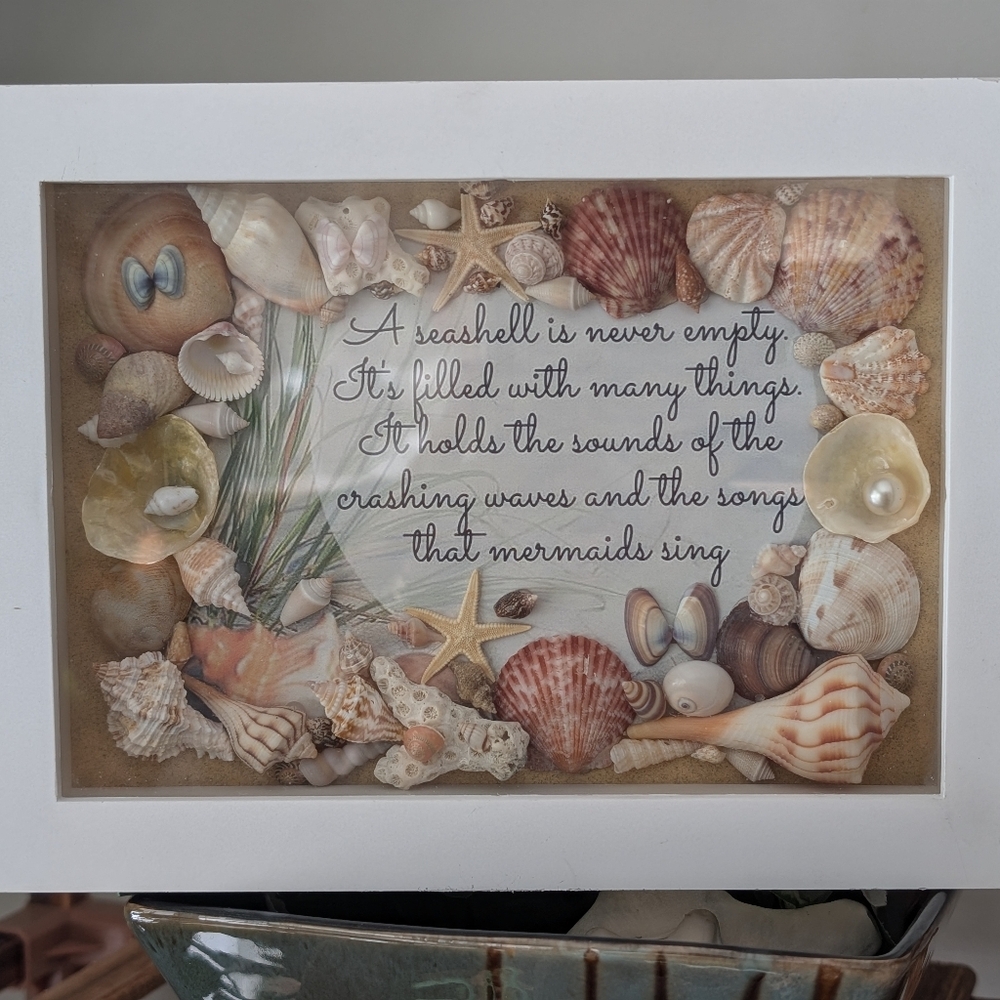 A seashell is never empty.
It's filled with many things.
It holds the sounds of the
crashing waves and the songs
that mermaids sing